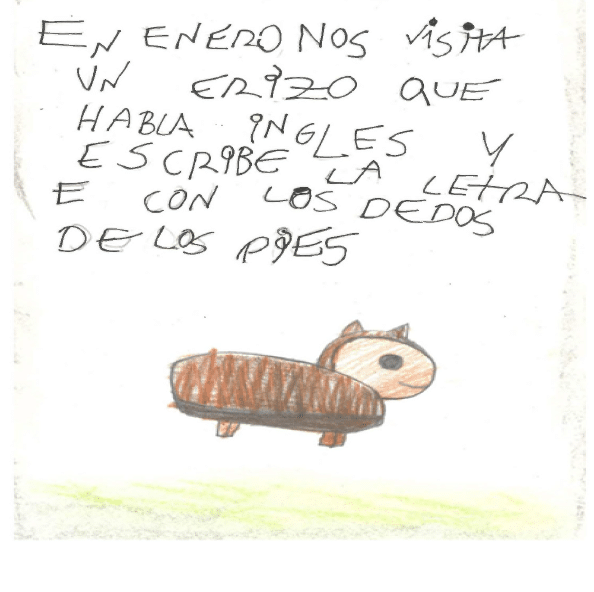 EN ENERO NOS VISITA
UN ERIZO QUE
HABLA INGLES Y
ESCRIBE LA LETRA
E CON LOS DEDOS
DE LOS PIES